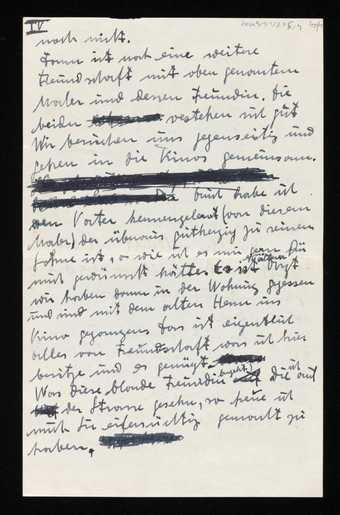 IV
noch nicht.
Dann ist noch eine weitere
Freundschaft mit oben genanntem
Maler und dessen Freundin. Die
beiden verstehen sich gut
Wir besuchen uns gegenseitig und
gehen in die Kinos gemeinsam.
habe ich
den Vater kennengelernt (von diesem
Maler) der überaus gutherzig zu seinem
Sohne ist, so wie ich es mir gern für
mich gewünscht hätte.
wir haben dann in der Wohnung gegessen
und sind mit dem alten Herrn ins
Kino gegangen Das ist eigentlich
alles von Freundschaft was ich hier
besitze und es genügt
Was diese blonde Freundin die ich auf
der Strasse gesehn, so freue ich
mich Sie eifersüchtig gemacht zu
haben.